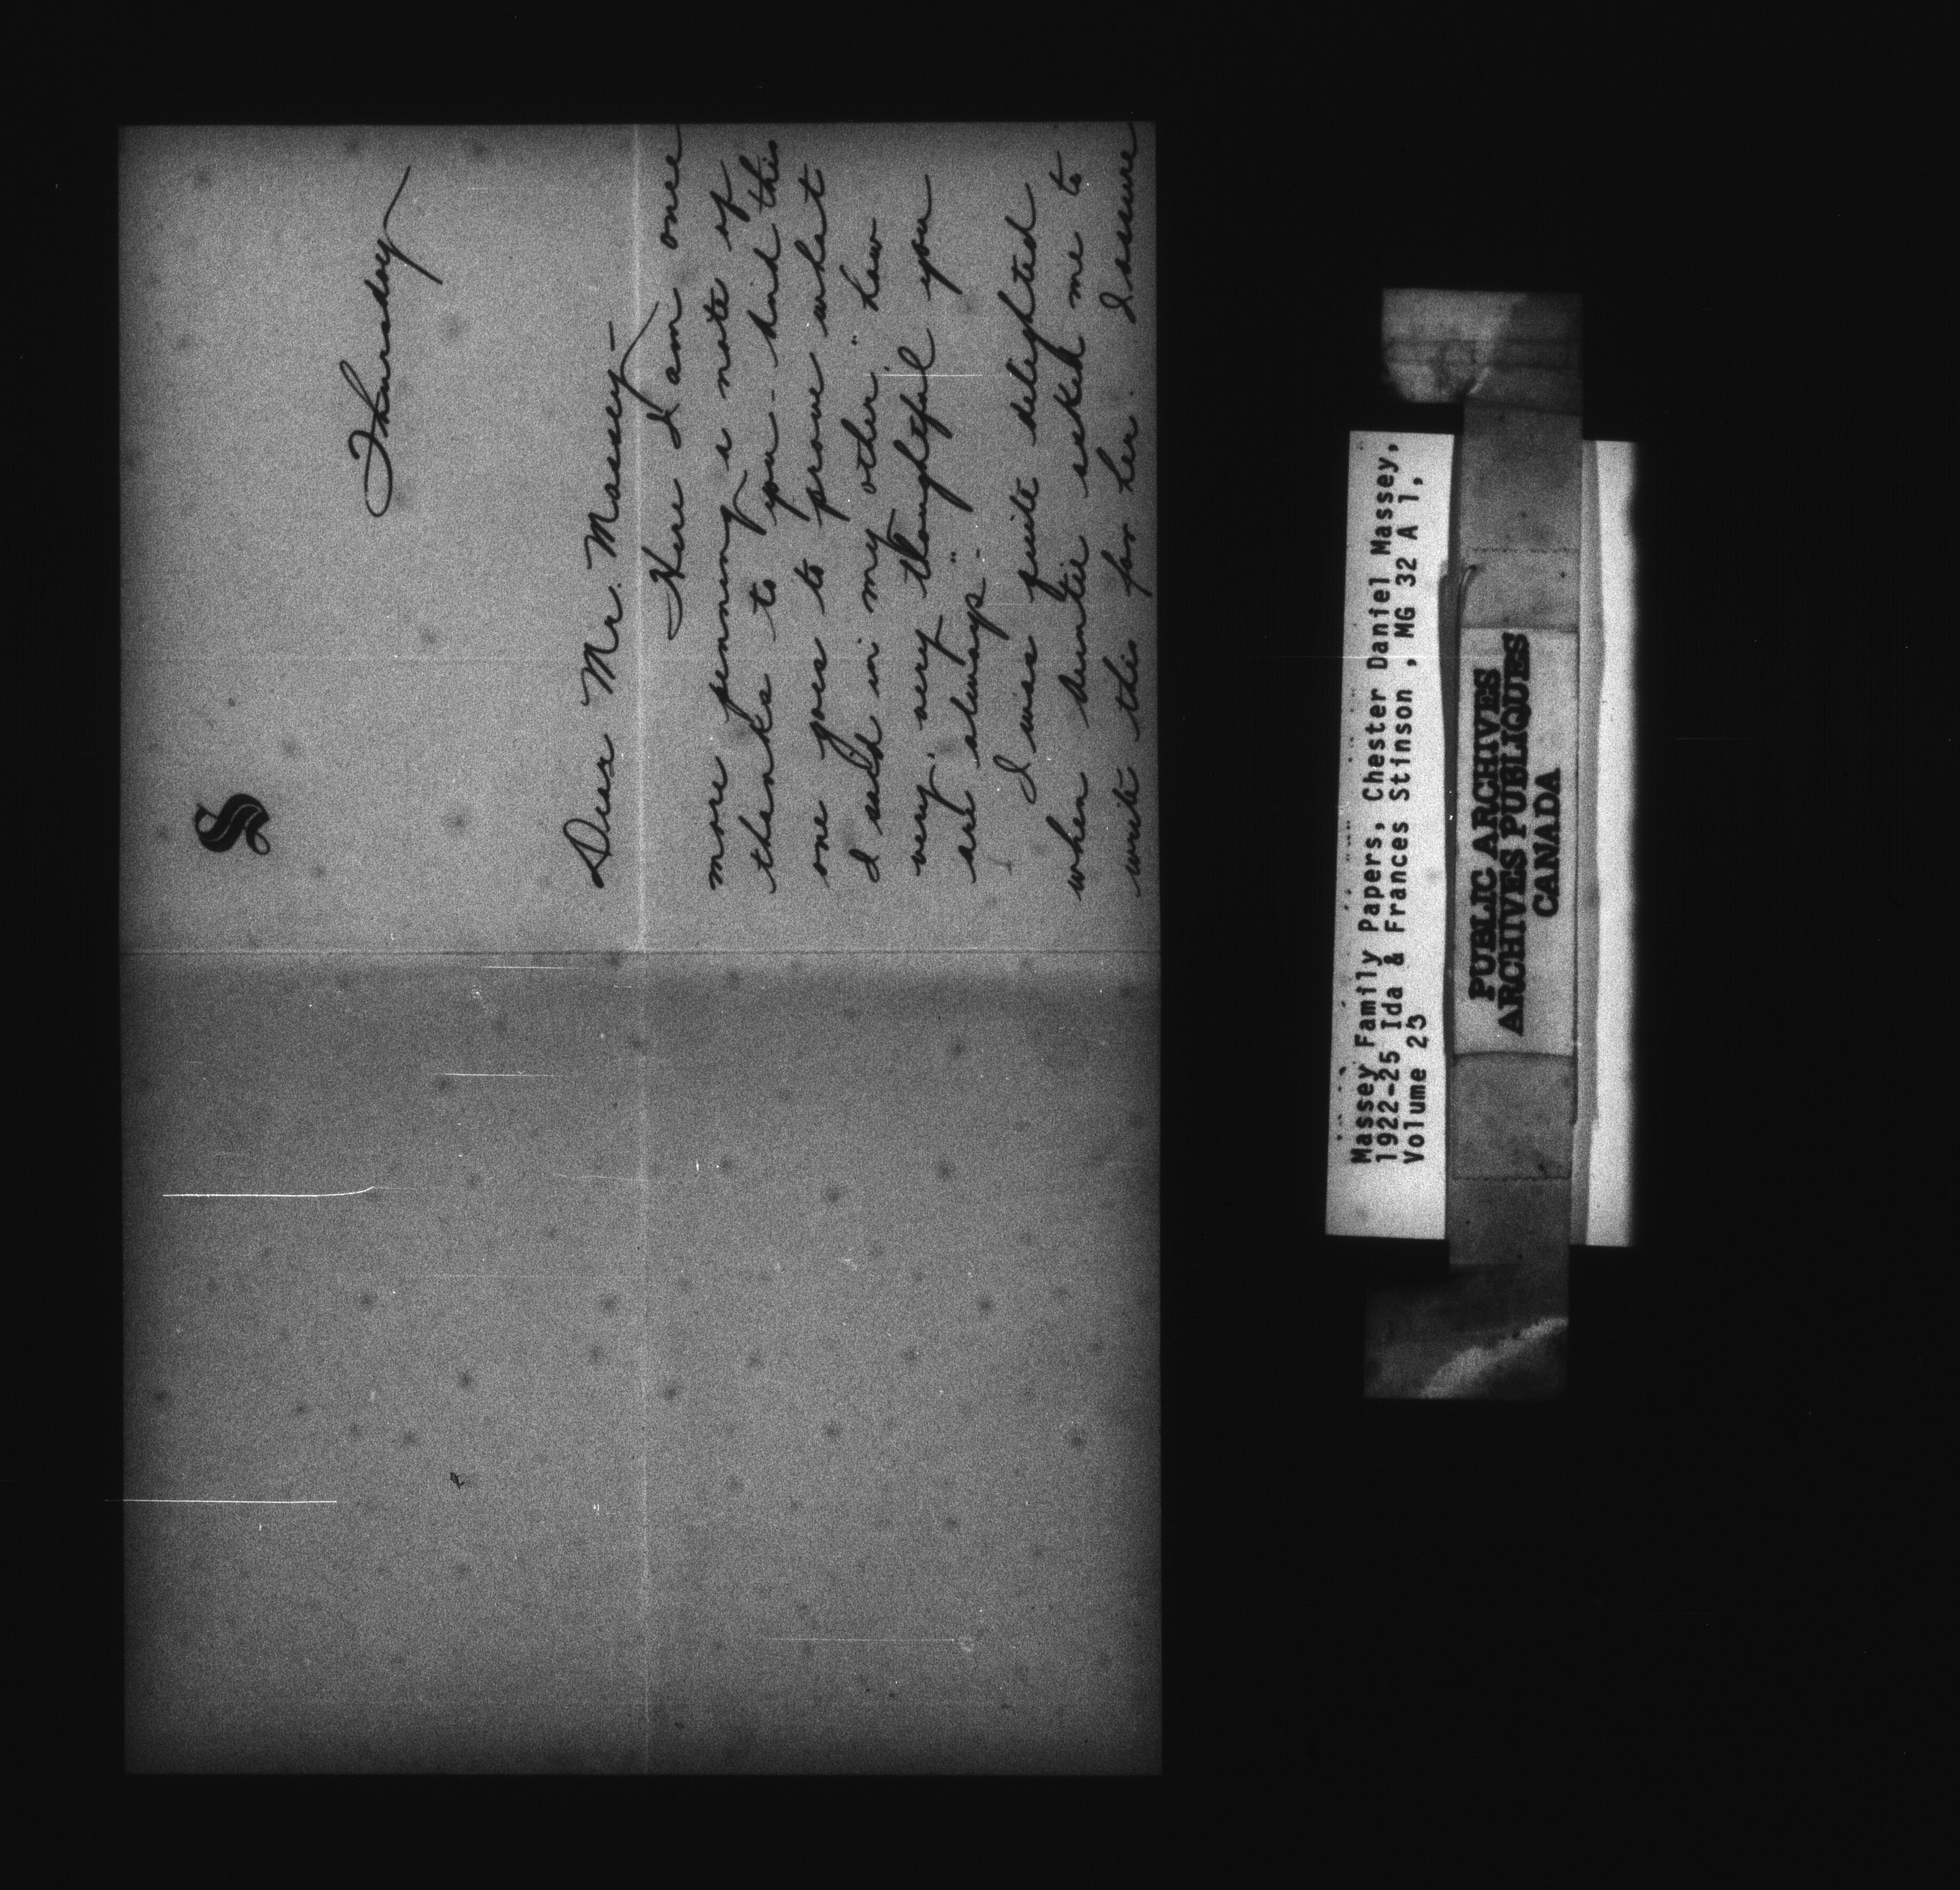 S
Thursday
Dear Mr. Massey—
Here I am once
more penning a note of
thanks to you - and this
one goes to prove what
I said in my other, "how
very, very thoughtful you
are always".
I was quite delighted
when Auntie asked me to
write this for her. I assure
Massey Family Papers, Chester Daniel Massey,
1922-25 Ida & Frances Stinson , MG 32 A 1,
Volume 23
PUBLIC ARCHIVES
ARCHIVES PUBLIQUES
CANADA